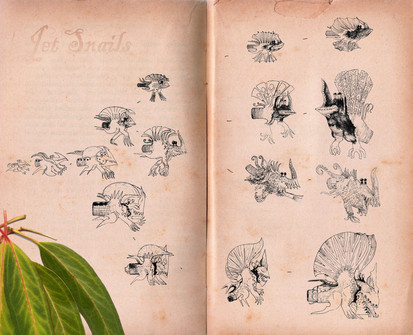 Jet Snails